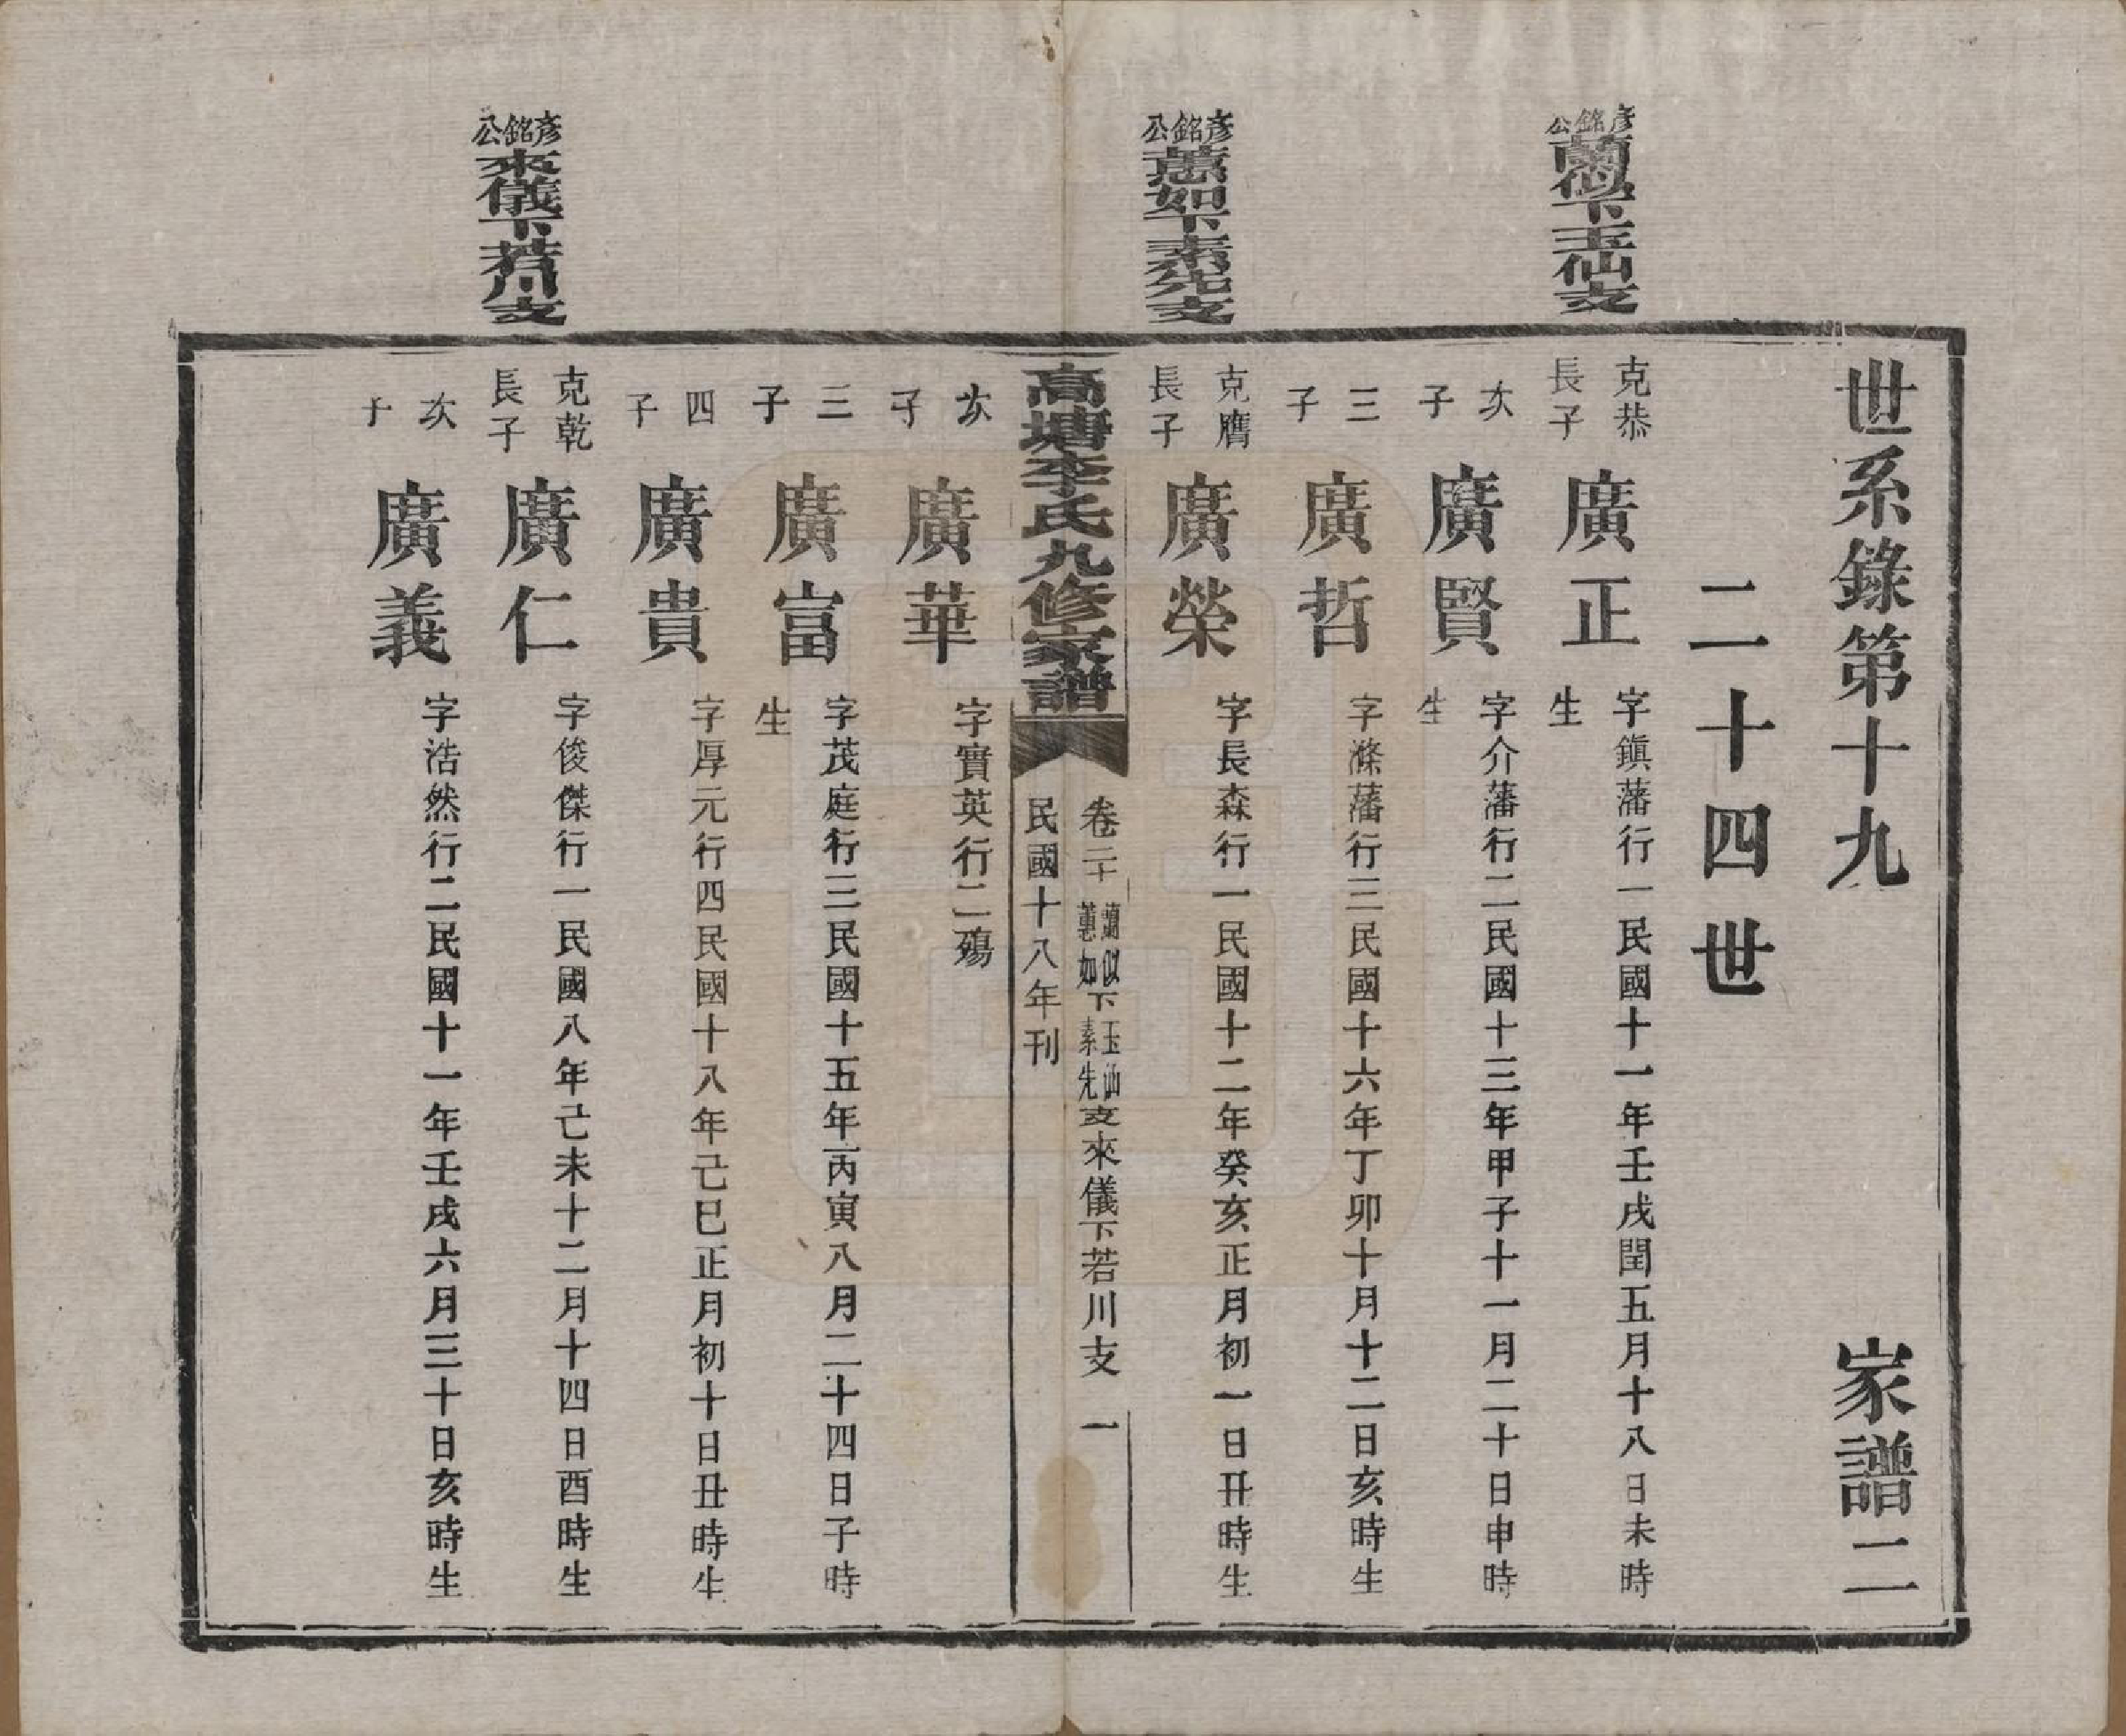 世系錄第十九　家譜二
二十四世
彥銘公蘭似下玉仙支
克恭長子　廣正　字鎭藩行一民國十一年壬戌閏五月十八日未時生
次子　廣賢　字介藩行二民國十三年甲子十一月二十日申時生
三子　廣哲　字滌藩行三民國十六年丁卯十月十二日亥時生
彥銘公蕙如下素先支
克膺長子　廣榮　字長森行一民國十二年癸亥正月初一日丑時生
高塘李氏九修家譜　卷二十　蘭似蕙如下玉仙素先支來儀下若川支　一
民國十八年刊
次子　廣華　字實英行二殤
三子　廣富　字茂庭行三民國十五年丙寅八月二十四日子時生
四子　廣貴　字厚元行四民國十八年己巳正月初十日丑時生
彥銘公來儀下若川支
克乾長子　廣仁　字俊傑行一民國八年己未十二月十四日酉時生
次子　廣義　字浩然行二民國十一年壬戌六月三十日亥時生